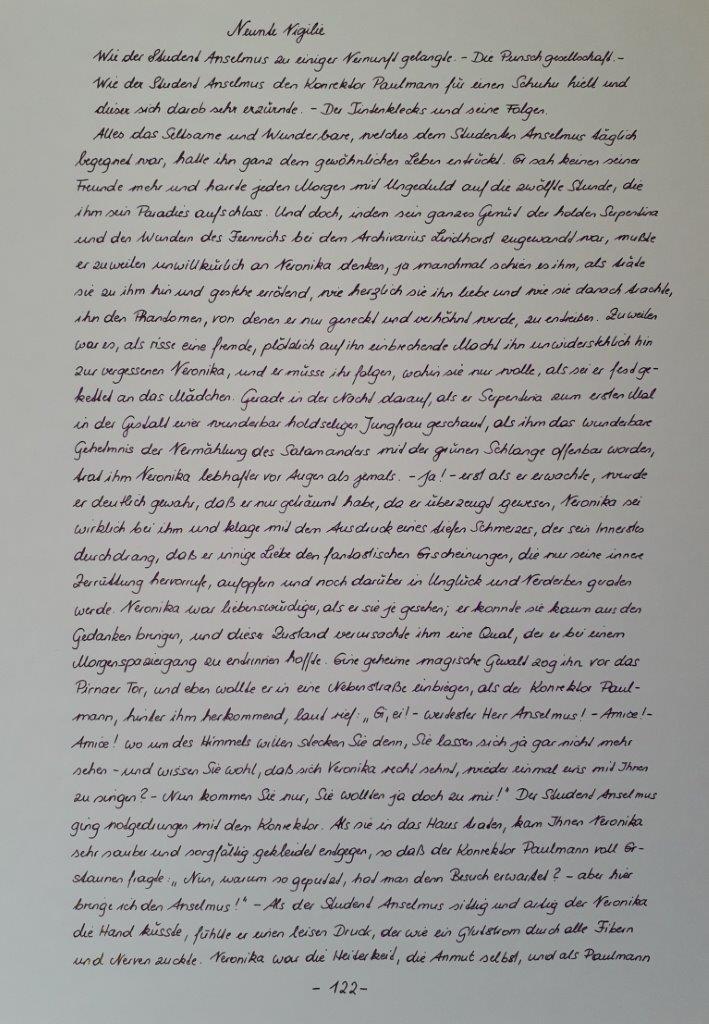 Neunte Vigilie
Wie der Student Anselmus zu einiger Vernunft gelangte. – Die Punschgesellschaft. –
Wie der Student Anselmus den Konrektor Paulmann für einen Schuhu hielt und
dieser sich darob sehr erzürnte. – Der Tintenklecks und seine Folgen.
Alles das Seltsame und Wunderbare, welches dem Studenten Anselmus täglich
begegnet war, hatte ihn ganz dem gewöhnlichen Leben entrückt. Er sah keinen seiner
Freunde mehr und harrte jeden Morgen mit Ungeduld auf die zwölfte Stunde, die
ihm sein Paradies aufschloss. Und doch, indem sein ganzes Gemüt der holden Serpentina
und den Wundern des Feenreichs bei dem Archivarius Lindhorst zugewandt war, mußte
er zuweilen unwillkürlich an Veronika denken, ja manchmal schien es ihm, als träte
sie zu ihm hin und gestehe errötend, wie herzlich sie ihn liebe und wie sie danach trachte,
ihn den Phantomen, von denen er nur geneckt und verhöhnt werde, zu entreißen. Zuweilen
war es, als risse eine fremde, plötzlich auf ihn einbrechende Macht ihn unwiderstehlich hin
zur vergessenen Veronika, und er müsse ihr folgen, wohin sie nur wolle, als sei er festge-
kettet an das Mädchen. Gerade in der Nacht darauf, als er Serpentina zum ersten Mal
in der Gestalt einer wunderbar holdseligen Jungfrau geschaut, als ihm das wunderbare
Geheimnis der Vermählung des Salamanders mit der grünen Schlange offenbar worden,
trat ihm Veronika lebhafter vor Augen als jemals. – Ja! – erst als er erwachte, wurde
er deutlich gewahr, daß er nur geträumt habe, da er überzeugt gewesen, Veronika sei
wirklich bei ihm und klage mit dem Ausdruck eines tiefen Schmerzes, der sein Innerstes
durchdrang, daß er innige Liebe den fantastischen Erscheinungen, die nur seine innere
Zerrüttung hervorrufe, aufopfern und noch darüber in Unglück und Verderben geraten
werde. Veronika war liebenswürdiger, als er sie je gesehen; er konnte sie kaum aus den
Gedanken bringen, und dieser Zustand verursachte ihm eine Qual, der er bei einem
Morgenspaziergang zu entrinnen hoffte. Eine geheime magische Gewalt zog ihn vor das
Pirnaer Tor, und eben wollte er in eine Nebenstraße einbiegen, als der Konrektor Paul-
mann, hinter ihm herkommend, laut rief: „Ei, ei! – wertester Herr Anselmus! – Amice! –
Amice! wo um des Himmels willen stecken Sie denn, Sie lassen sich ja gar nicht mehr
sehen – und wissen Sie wohl, daß sich Veronika recht sehnt, wieder einmal eins mit Ihnen
zu singen? – Nun kommen Sie nur, Sie wollten ja doch zu mir!“ Der Student Anselmus
ging notgedrungen mit dem Konrektor. Als sie in das Haus traten, kam Ihnen Veronika
sehr sauber und sorgfältig gekleidet entgegen, so daß der Konrektor Paulmann voll Er-
staunen fragte: „Nun, warum so geputzt, hat man denn Besuch erwartet? – aber hier
bringe ich den Anselmus!“ – Als der Student Anselmus sittig und artig der Veronika
die Hand küsste, fühlte er einen leisen Druck, der wie ein Glutstrom durch alle Fibern
und Nerven zuckte. Veronika war die Heiterkeit, die Anmut selbst, und als Paulmann
- 122 -